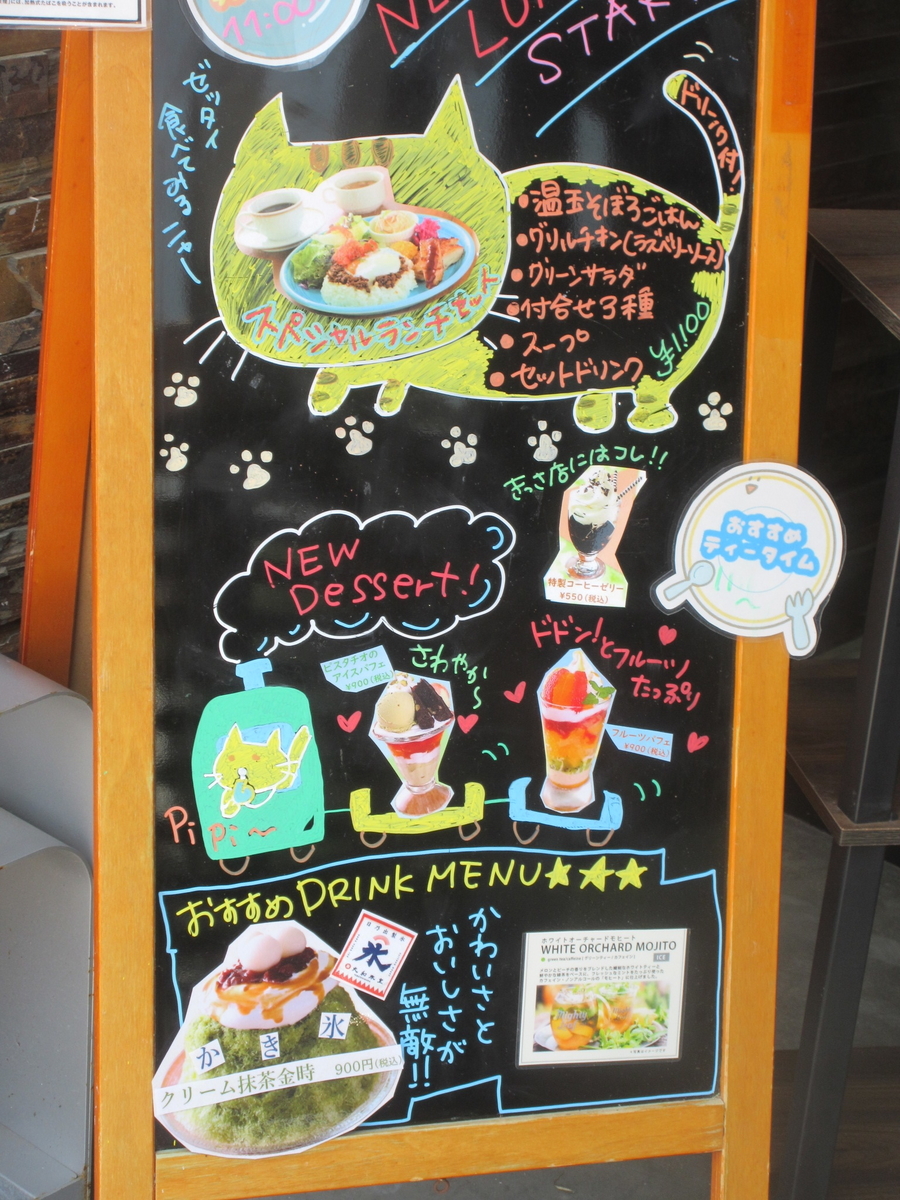 11:00
START
ゼッタイ
食べてみるニャー
ドリンク付!
•温玉そぼろごはん
•グリルチキン(ラズベリーソース)
•グリーンサラダ
•付合せ3種
•スープ
•セットドリンク
¥1,100
スペシャルランチセット
きっさ店にはコレ!!
特製コーヒーゼリー
¥550(税込)
おすすめ
ティータイム
NEW
Dessert!
ピスタチオの
アイスパフェ
¥900(税込)
さわやか〜
ドドン!と
フルーツ
たっぷり
フルーツパフェ
¥900(税込)
Pi Pi〜
おすすめDRINK MENU★★★
氷
かわいさと
おいしさが
無敵!!
かき氷
クリーム抹茶金時 900円(税込)
ホワイトオーチャードモヒート
WHITE ORCHARD MOJITO
ICE